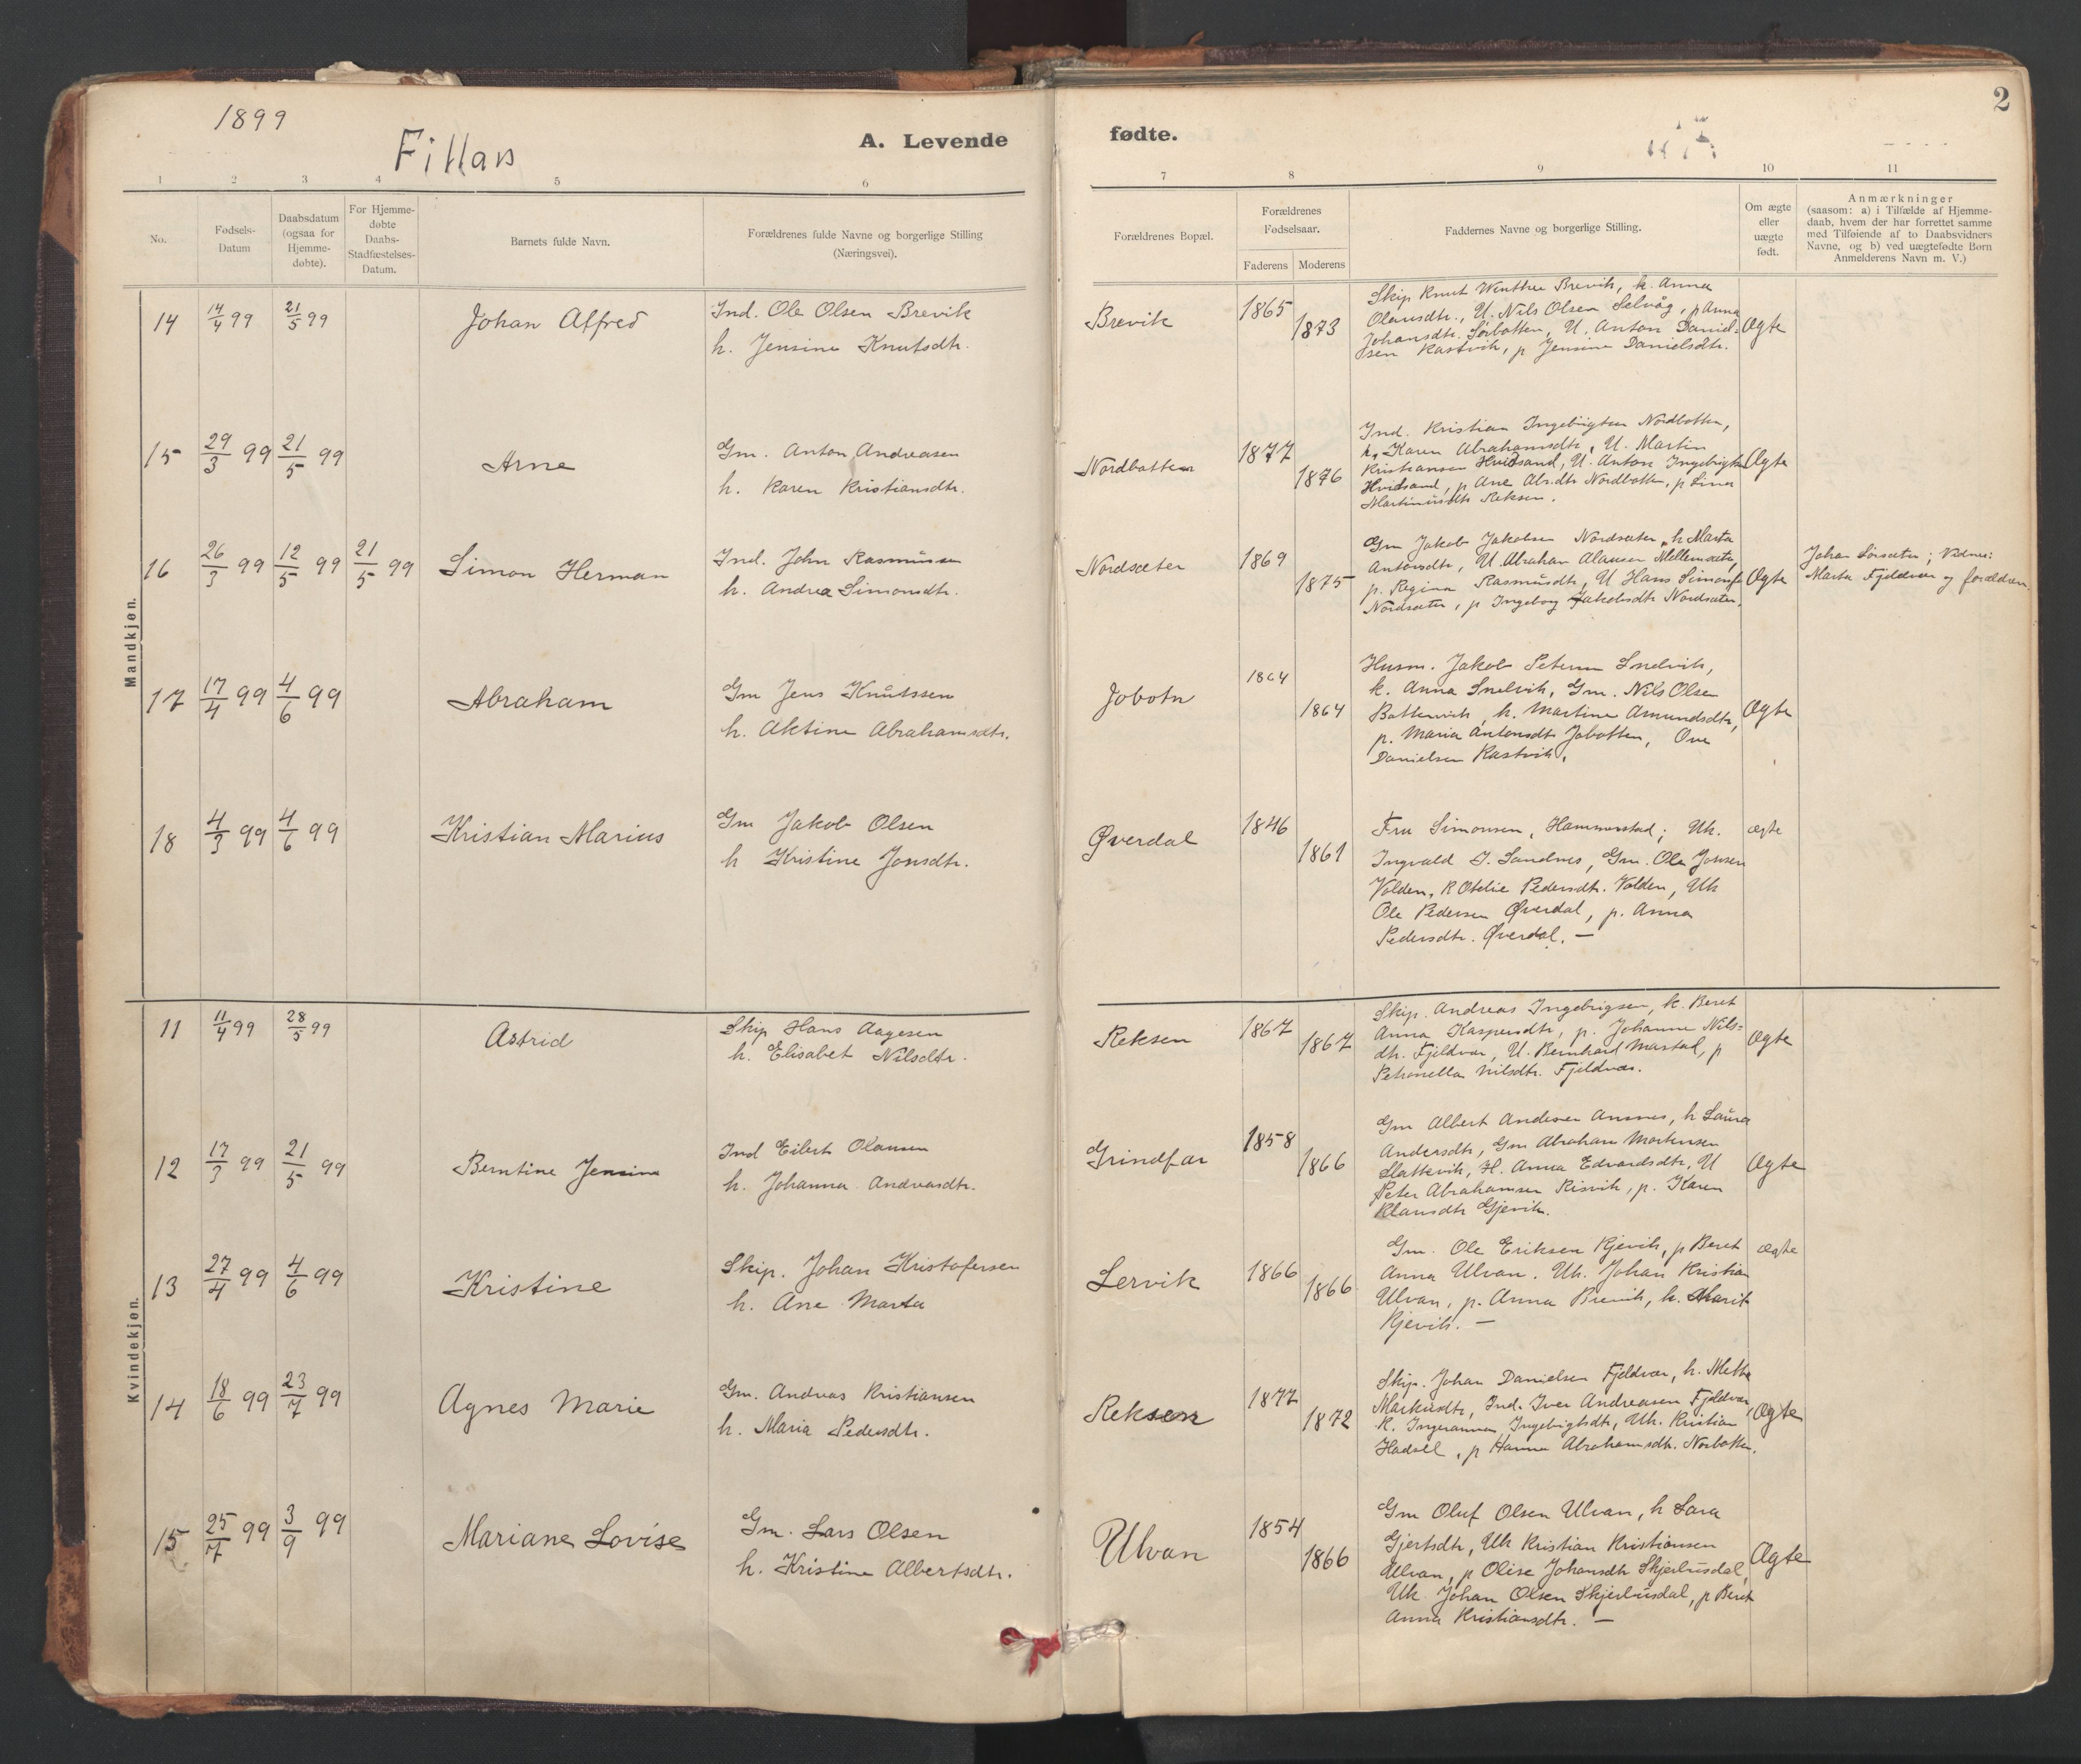 1899
Fillan
A. Levende
fødte.
2
1 2 3 4 5 6
7 8 9 10 11
No.
Fødsels-
Datum
Daabsdatum
(ogsaa for
Hjemme-
døbte).
For Hjemme-
døbte
Daabs-
Stadfæstelses-
Datum.
Barnets fulde Navn.
Forældrenes fulde Navne og borgerlige Stilling
(Næringsvei).
Forældrenes Bopæl.
Forældrenes
Fødselsaar.
Faderens
Moderens
Faddernes Navne og borgerlige Stilling.
Om ægte
eller
uægte
født.
Anmærkninger
(saasom: a) i Tilfælde af Hjemme-
daab, hvem der har forrettet samme
med Tilføiende af to Daabsvidners
Navne, og b) ved uægtefødte Børn
Anmelderens Navn m. V.)
Mandkjøn.
14 14/4 99 21/5 99 Johan Alfred
Ind. Ole Olsen Brevik
h. Jensine Knutsdtr.
Brevik 1865 1873
Skip. Knut Brevik, k. Anna
Olausdtr., U. Nils Olsen Selvåg, p Anna
Johansdtr. Sørbotten, U. Anton Daniel-
sen Rastvik, p Jensine Danielsdtr.
Ægte
15 29/3 99 21/5 99 Arne
Gm. Anton Andreasen
h. Karen Kristiansdtr.
Nordbotten 1877 1876
Ind. Kristian Ingebrigtsen Nordbotten,
k. Karen Abrahamsdtr, U. Martin
Kristiansen Hvidsand, U. Anton Ingebrigts
Hvidsand, p Ane Abr.dtr Nordbotten, p Lina
Martinusdtr Reksen.
Ægte
16 26/3 99 12/5 99 21/5 99 Simon Herman
Ind. John Rasmussen
h. Andrea Simonsdtr.
Nordsæter 1869 1875
Gm Jakob Jakobsen Nordsæter, h Marta
Antonsdtr, U. Abraham Olausen Mellemsæter,
p. Regina Rasmusdtr, U Hans Simonsen
Nordsæter, p Ingeborg Jakobsdtr Nordsæter.
Ægte
Johan Sørsæter; Vidner:
Marta Fjeldvær og forældren
17 17/4 99 4/6 99 Abraham
Gm Jens Knutssen
h. Aktine Abrahamsdtr.
Jobotn 1864 1864
Husm. Jakob Petersen Snelvik,
k. Anna Snelvik, Gm. Nils Olsen
Bottenvik, h. Martine Amundsdtr,
p. Maria Antonsdtr Jobotten, Ove
Danielsen Rastvik.
Ægte
18 4/3 99 4/6 99 Kristian Marius
Gm Jakob Olsen
h Kristine Jonsdtr.
Øverdal 1846 1861
Fru Simonsen, Hammerstad; Uk.
Ingvald J. Sandnes, Gm. Ole Jonsen
Volden, K Otelie Pedersdtr. Volden, Uk
Ole Pedersen Øverdal, p. Anna
Pedersdtr. Øverdal. —
ægte
Kvindekjøn.
11 11/4 99 28/5 99 Astrid
Skip Hans Aagesen
h. Elisabet Nilsdtr.
Reksen 1867 1867
Skip. Andreas Ingebrigsen, k. Beret
Anna Kaspersdtr, p. Johanna Nils-
dtr. Fjeldvær, U. Bernhard Mastad, p
Petronella Nilsdtr. Fjeldvær.
Ægte
12 17/3 99 21/5 99 Berntine Jensine
Ind Eilert Olausen
h. Johanna Andreasdtr.
Grindfar 1858 1866
Gm Albert Andersen Ansnes, h Laura
Andersdtr, Gm Abraham Mortensen
Slattevik, H. Anna Edvardsdtr, U
Peter Abrahamsen Risvik, p. Karen
Klausdtr Gjevik.
Ægte
13 27/4 99 4/6 99 Kristine
Skip. Johan Kristofersen
h. Ane Marta
Lervik 1866 1866
Gm. Ole Eriksen Kjevik, p Beret
Anna Ulvan. Uk. Johan Kristian
Ulvan, p. Anna Brevik, k. Marit
Kjevik. —
ægte
14 18/6 99 23/7 99 Agnes Marie
Gm. Andreas Kristiansen
h. Maria Pedersdtr.
Reksen 1877 1872
Skip. Johan Danielsen Fjeldvær, h. Metta
Markusdtr, Ind. Iver Andreasen Fjeldvær,
K. Ingeranna Ingebrigtsdtr, Uk. Kristian
Hadsel, p Hanna Abrahamsdtr. Norbotten.
Ægte
15 25/7 99 3/9 99 Mariane Lovise
Gm. Lars Olsen
h. Kristine Albertsdtr.
Ulvan 1854 1866
Gm Oluf Olsen Ulvan, h Sara
Gjertsdtr, Uk Kristian Kristiansen
Ulvan, p Olise Johansdtr Skjerbusdal,
Uk Johan Olsen Skjerbusdal, p Beret
Anna Kristiansdtr. —
Ægte